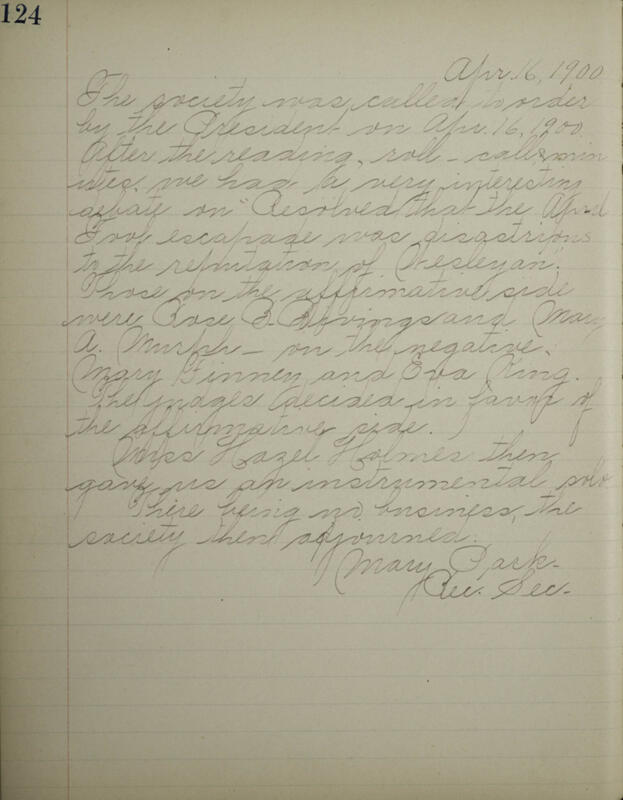 124
Apr. 16, 1900
The society was called to order
by the President on Apr. 16, 1900.
After the reading, roll-call & min
utes, we had a very interesting
debate on "Resolved that the April
Fool escapade was disastrious
to the reputation of Wesleyan".
Those on the affirmative side
were Rose B. and Mary
A. Murph - on the negative,
Mary Finney and Eva King.
The judges decided in favor of
the affirmative side.
Miss Hazel Holmes then
gave us an instrumental solo
There being no business, the
society then adjourned.
Mary Park-
Rec. Sec.